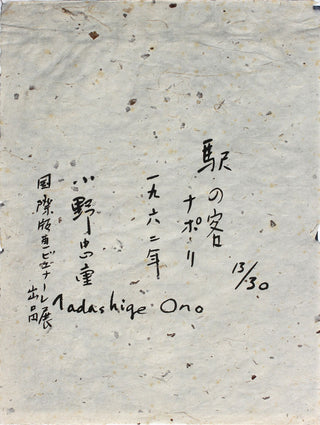 駅の客
ナポリ
一九六二年
小野忠重
Tadashige Ono
国際版画ビエンナーレ展
出品
13/30